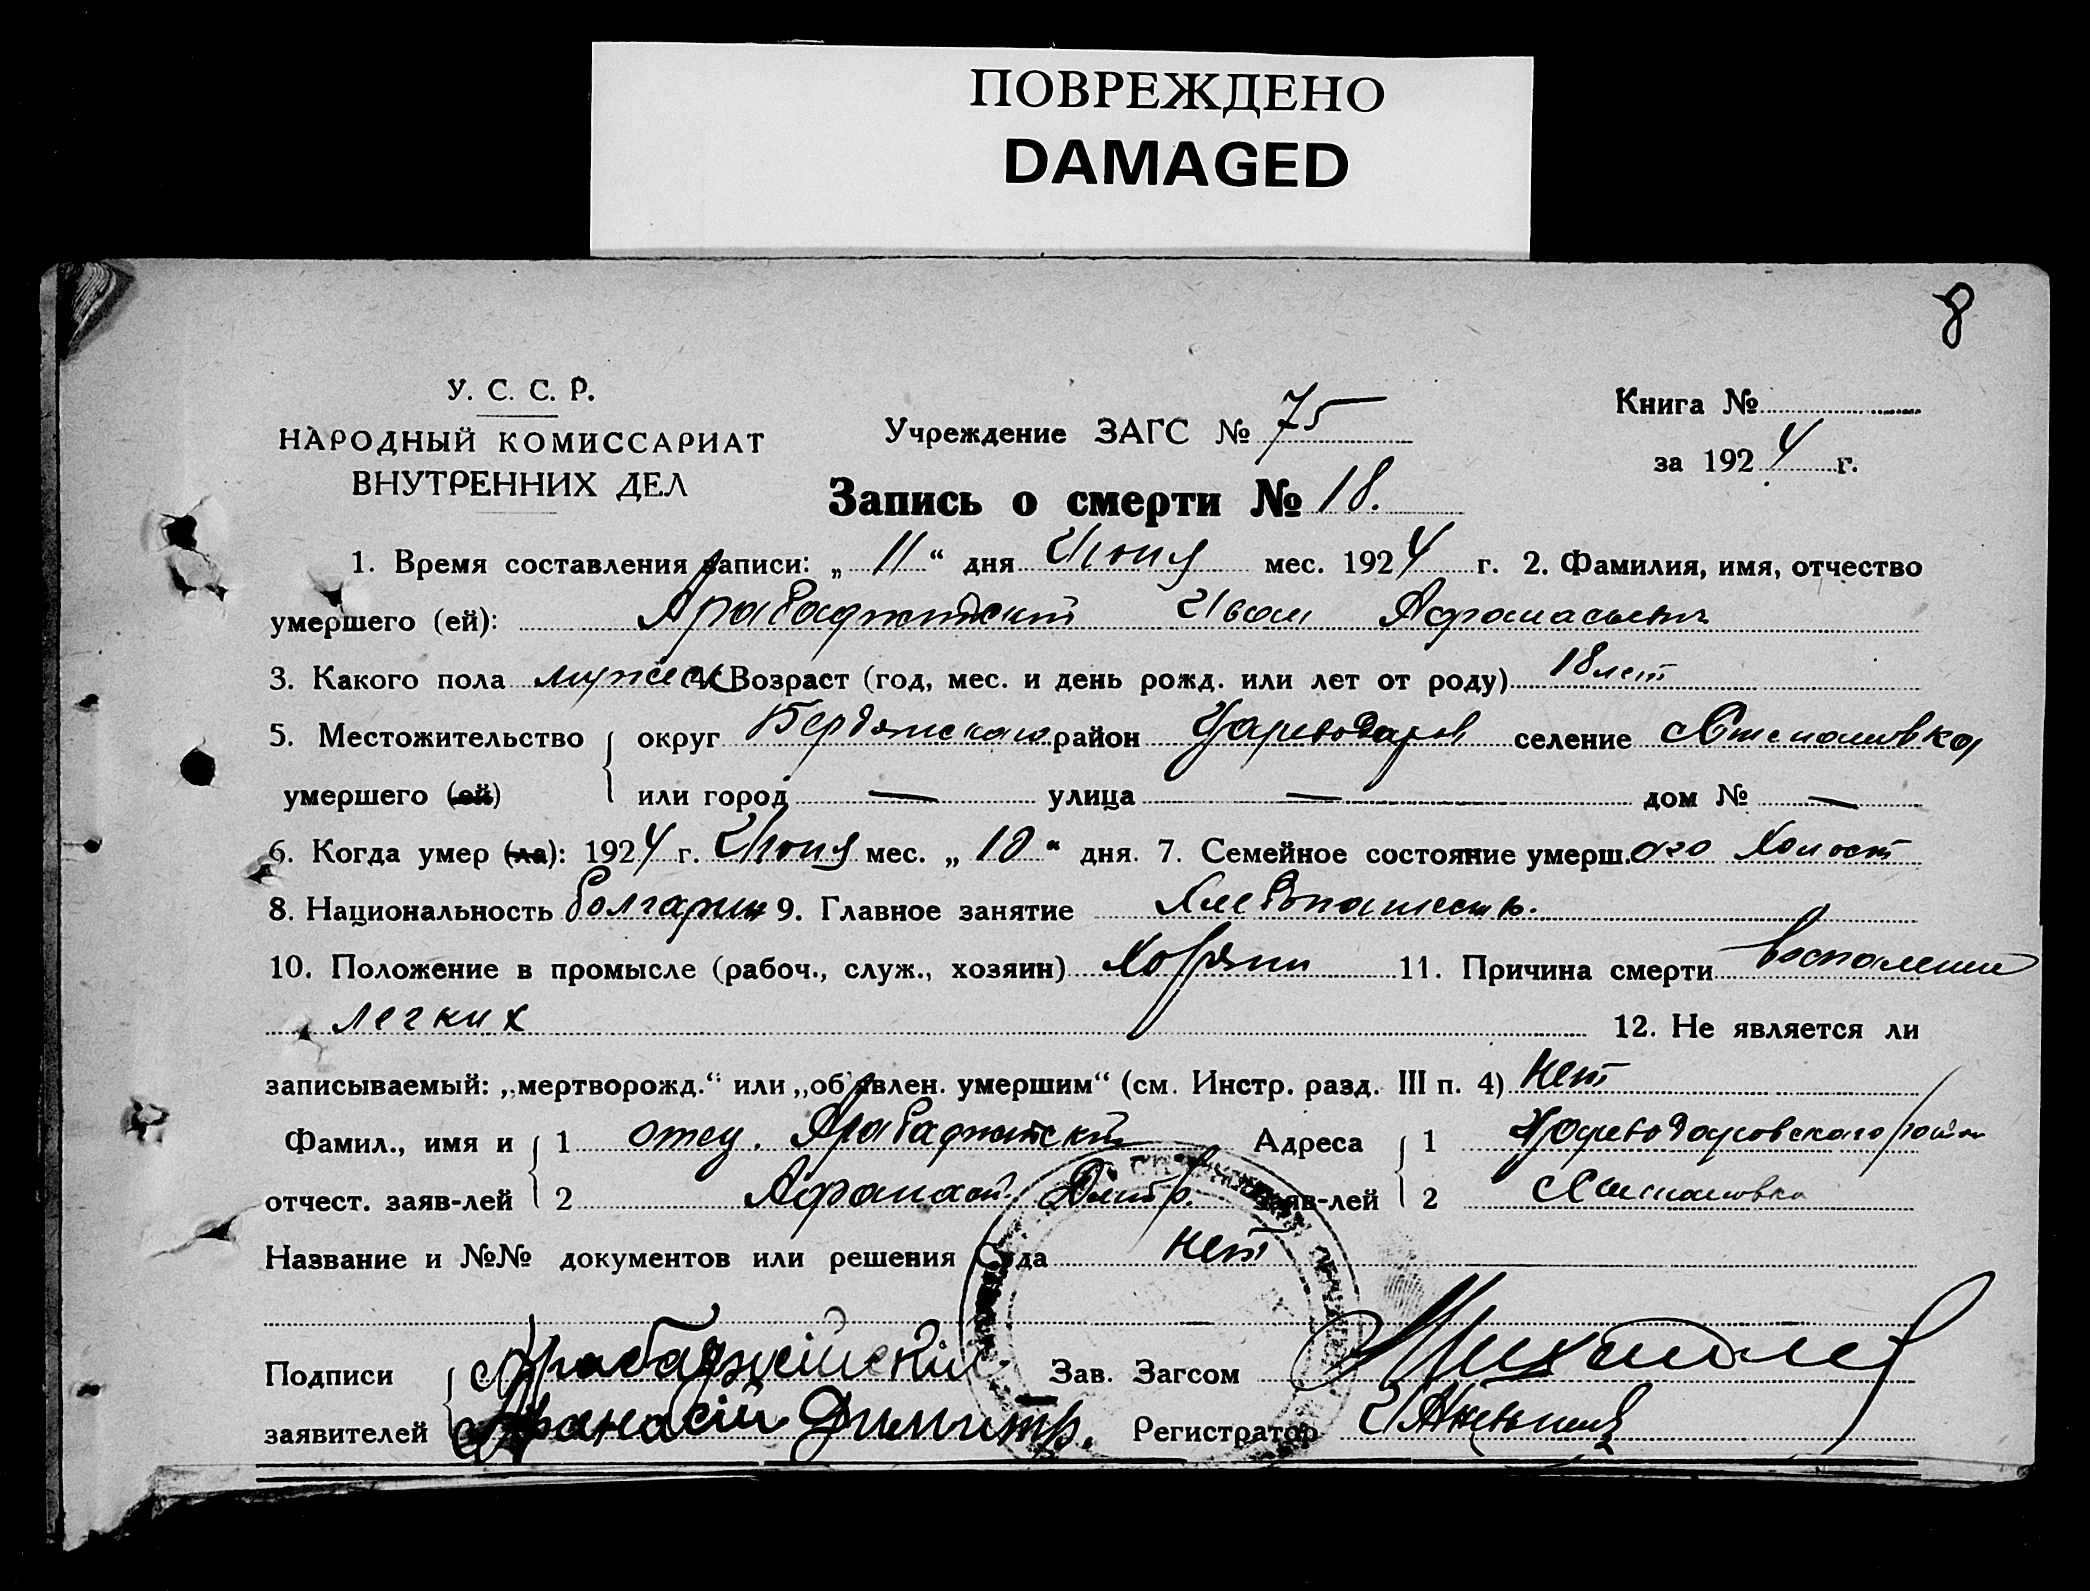 ПОВРЕЖДЕНО
DAMAGED
8
У. С. С. Р.
НАРОДНЫЙ КОМИССАРИАТ
ВНУТРЕННИХ ДЕЛ
Учреждение ЗАГС № 75
Книга №
за 1924 г.
Запись о смерти № 18.
1. Время составления записи: „ 11 “ дня Июня мес. 1924 г. 2. Фамилия, имя, отчество
умершего (ей): Арабаджийский Иван Афанасьевич
3. Какого пола мужск 4. Возраст (год, мес. и день рожд. или лет от роду) 18 лет
5. Местожительство округ Бердянского район Цареводаров селение Степановка
умершего (ей) или город — улица — дом № —
6. Когда умер (ла): 1924 г. Июня мес. „ 10 “ дня. 7. Семейное состояние умерш. ого Холост
8. Национальность болгарин 9. Главное занятие Хлебопашест.
10. Положение в промысле (рабоч., служ., хозяин) Хозяин 11. Причина смерти воспаление
легких 12. Не является ли
записываемый: „мертворожд.“ или „об'явлен. умершим“ (см. Инстр. разд. III п. 4) нет
Фамил., имя и 1 отец. Арабаджийский Адреса 1 Цареводаровского район
отчест. заяв-лей 2 Афанаси Дмитр. заяв-лей 2 Степановка
Название и №№ документов или решения Суда нет
Подписи Арабаджейский Зав. Загсом
заявителей Афанасий Димитр. Регистратор